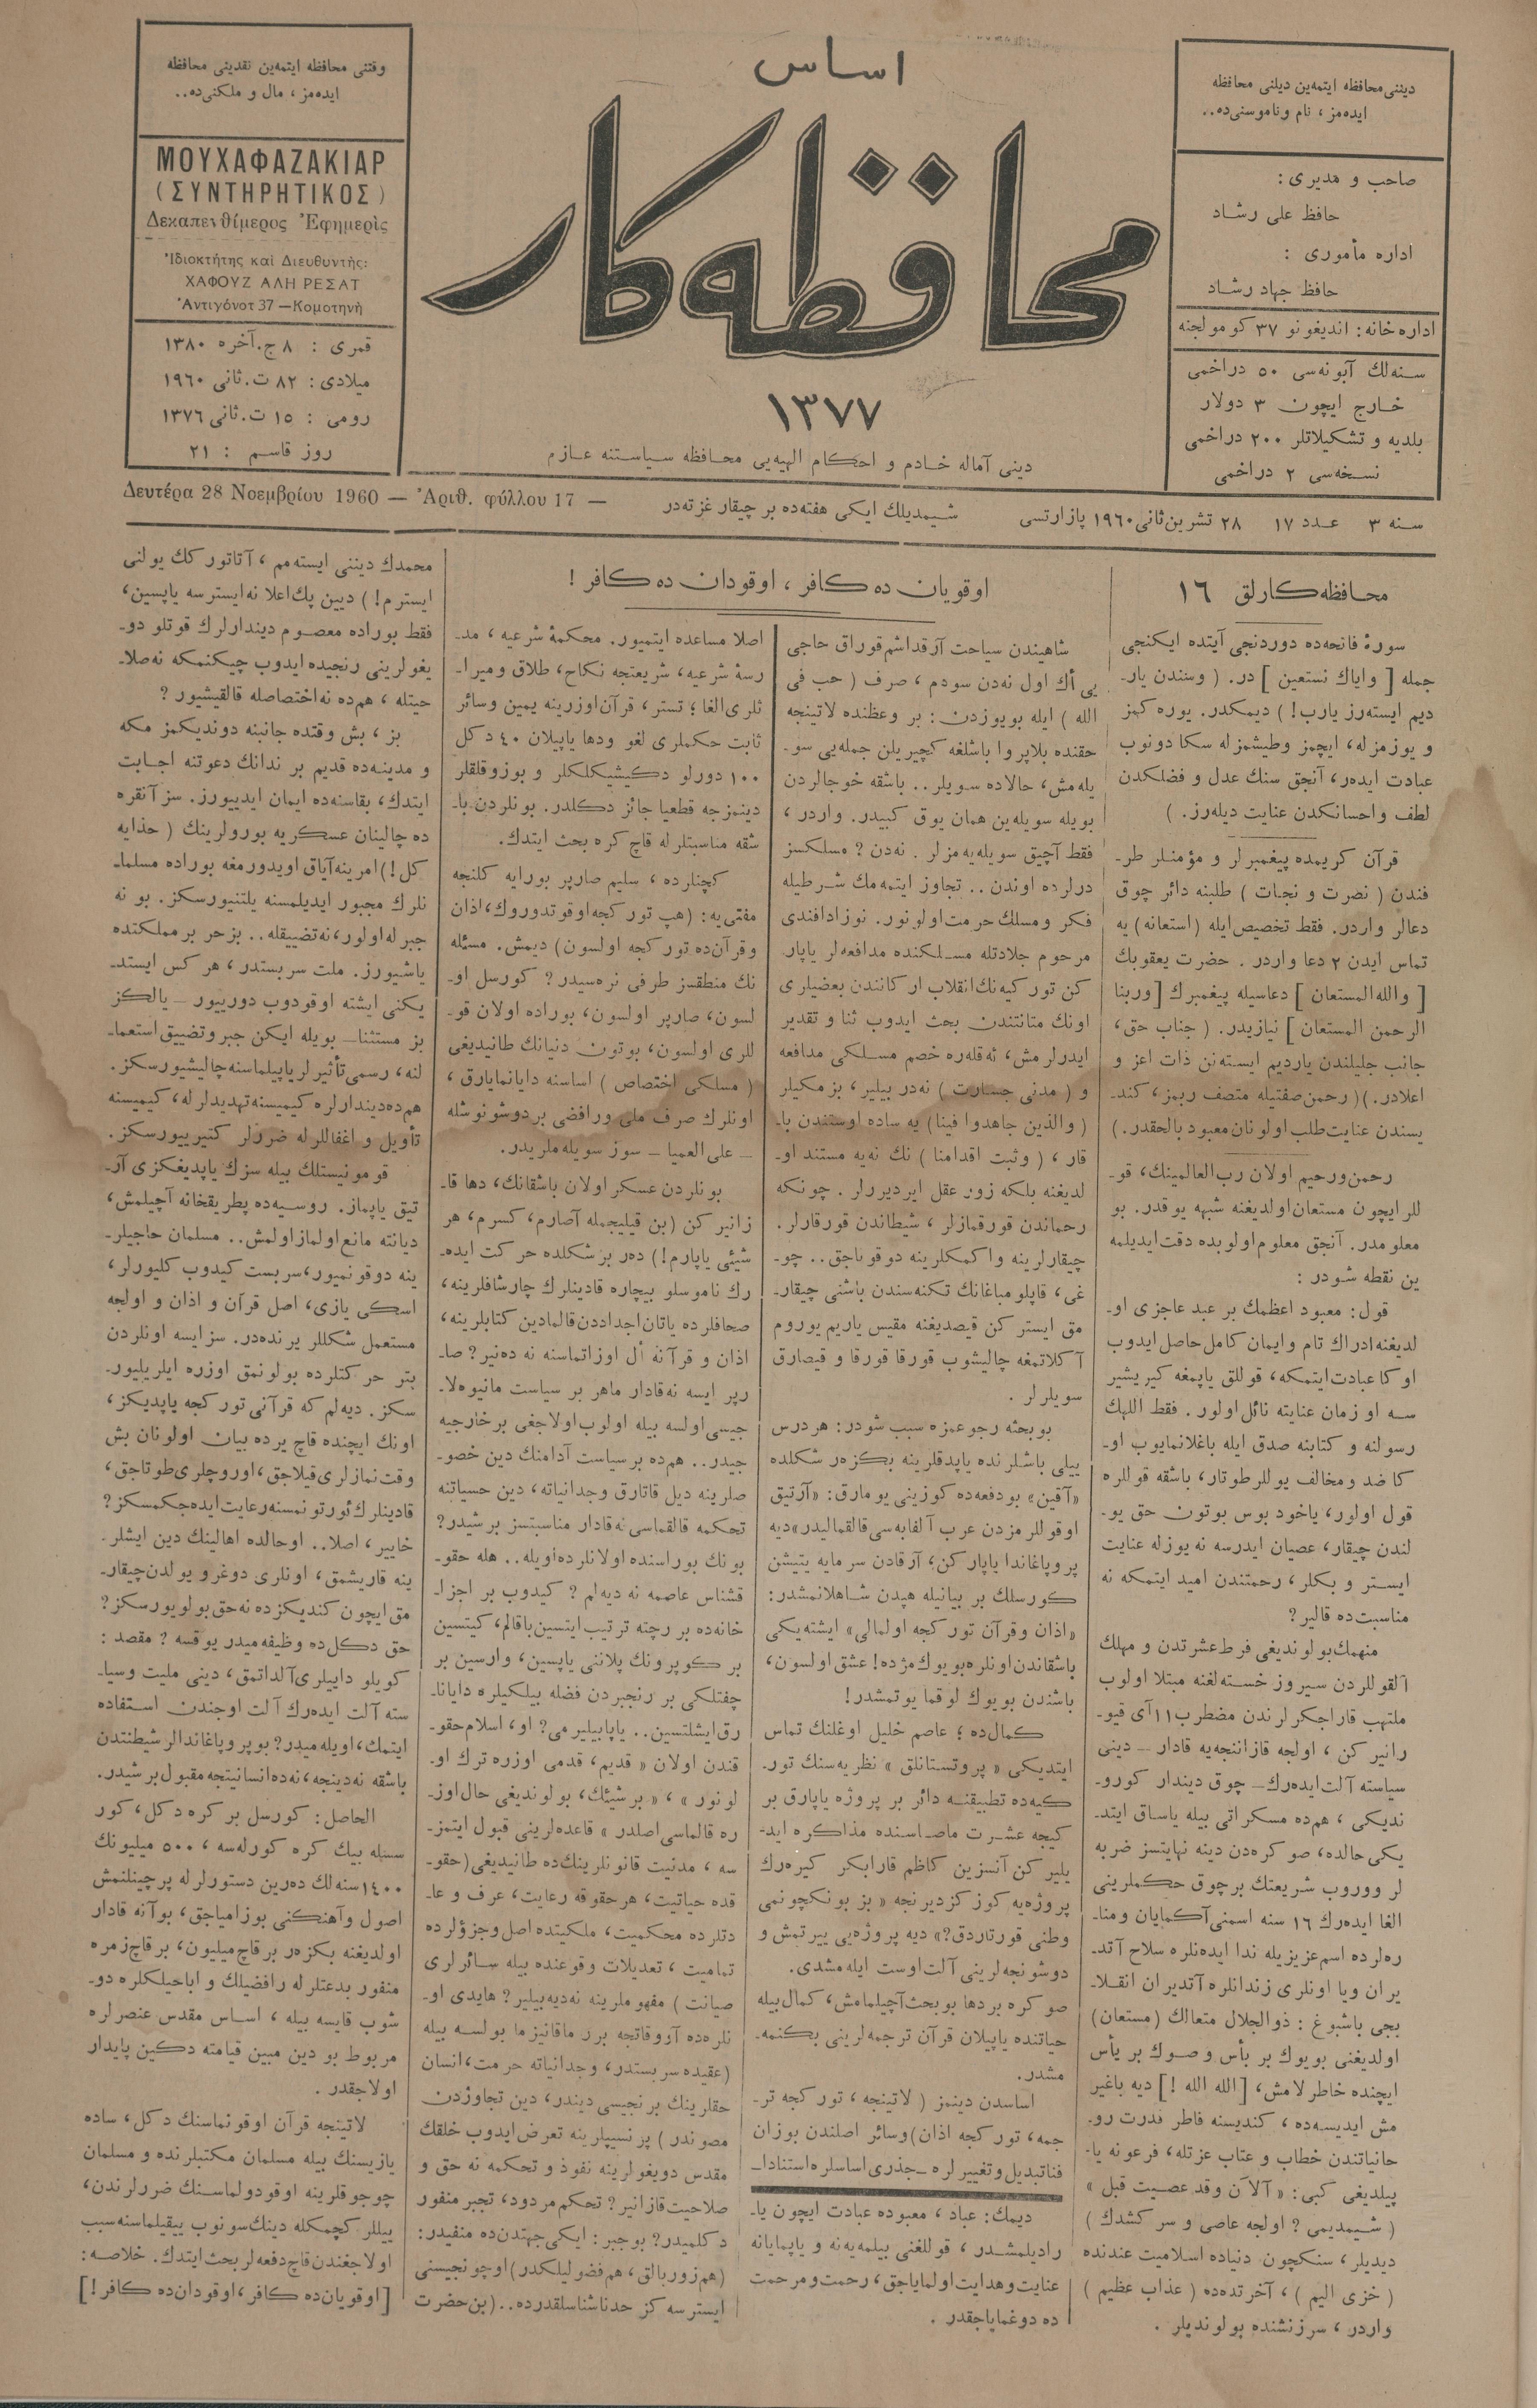 دیننی محافظه ایتمه‌ین دیلنی محافظه
ایده‌مز ، نام وناموسنی‌ده..
صاحب و مدیری :
حافظ علی رشـاد
اداره مأموری :
حافظ جهاد رشـاد
اداره‌خانه: اندیغونو ٣٧ کومولجنه
سـنه‌لك آبونه‌سی ٥٠ دراخمی
خـارج ایچون ٣ دولار
بلدیه و تشکیلاتلر ٢٠٠ دراخمی
نسـخه‌سی ٢ دراخمی
اسـاس
محافظه‌کار
١٣٧٧
دینی آماله خـادم و احـکام الهیه‌یی محـافظه سیـاسـتنه عـازم
وقتنی محافظه ایتمه‌ین نقدینی محافظه
ایده‌مز ، مال و ملکنی‌ده..
ΜΟΥΧΑΦΑΖΑΚΙΑΡ
(ΣΥΝΤΗΡΗΤΙΚΟΣ)
Δεκαπενθίμερος Ἐφημερὶς
Ἰδιοκτήτης καὶ Διευθυντὴς:
ΧΑΦΟΥΖ ΑΛΗ ΡΕΣΑΤ
Ἀντιγόνοτ 37 —Κομοτηνὴ
قمری : ٨ ج.آخره ١٣٨٠
میلادی: ٨٢ ت.ثانی ١٩٦٠
رومی : ١٥ ت.ثانی ١٣٧٦
روز قاسـم : ٢١
سـنه ٣ عـدد ١٧ ٢٨ تشرین‌ثانی ١٩٦٠ پازارتسی
شـیمدیلك ایکی هفته‌ده بر چیقار غزته‌در
Δευτέρα 28 Νοεμβρίου 1960 — Ἀριθ. φύλλου 17 —
محـافظه‌کارلق ١٦
سورۀ فاتحه‌ده دوردنجی آیتده ایکنجی
جمله [ وایاك نستعین ] در. ( وسندن یار-
دیم ایسته‌رز یارب! ) دیمکدر. یوره کمز
و یوزمزله، ایچمز وطیشمزله سکا دونوب
عبادت ایده‌ر، آنجق سنك عدل و فضلکدن
لطف واحسانکدن عنایت دیله‌رز. )
قرآن کریمده پیغمبرلر و مؤمنـلر طر-
فندن ( نصرت و نجـات ) طلبنه دائر چوق
دعالر واردر. فقط تخصیص‌ایله (استعانه) یه
تماس ایدن ٢ دعا واردر. حضرت یعقوبك
[ والله المستعان ] دعاسیله پیغمبرك [وربنا
الرحمن المستعان ] نیازیدر. ( جناب حق،
جانب جلیلندن یاردیم ایسته‌نن ذات اعز و
اعلادر.)( رحمن‌صفتیله متصف ربمز، کند-
یسندن عنایت‌طلب اولونان‌معبود بالحقدر. )
رحمن‌ورحیم اولان رب‌العالمینك، قو-
للر ایچون مستعان‌اولدیغنه شبهه یوقدر. بو
معلومدر. آنجق معلوم‌اولوبده دقت‌ایدیلمه
ین نقطه شودر :
قول: معبود اعظمك بر عبد عاجزی او-
لدیغنه‌ادراك تام وایمان کامل‌حاصل ایدوب
اوکا عبادت‌ایتمکه، قوللق یاپمغه کیریشیر
سـه او زمان عنایته نائل‌اولور. فقط اللهك
رسولنه و کتابنه صدق ایله باغلانمایوب او-
کا ضد ومخالف یوللرطوتار، باشقه قوللره
قول اولور، یاخود بوس بوتون حق یو-
لندن چیقار، عصیان ایدرسه نه یوزله عنایت
ایسـتر و بکلر، رحمتندن امید ایتمکه نه
مناسبت‌ده قالیر؟
منهمك‌بولوندیغی فرط‌عشرتدن و مهلك
آلقوللردن سـیروز خسـته‌لغنه مبتلا اولوب
ملتهب قاراجکرلرندن مضطرب ١١آی قیو-
رانیرکن ، اولجه قازاننجه‌یه قادار — دینی
سیاسته آلت‌ایده‌رك— چوق دیندار کورو-
ندیکی ، هم‌ده مسکراتی بیله یاسـاق ایتد-
یکی حالده، صوکره‌دن دینه نهایتسز ضربه
لر ووروب شریعتك برچوق حـکملرینی
الغا ایده‌رك ١٦ سنه اسمنی‌آکمایان ومنا-
ره‌لرده اسم‌عزیزیله ندا ایده‌نلره سلاح آتد-
یران ویا اونلری زندانلره آتدیران انقـلا-
بجی باشبوغ : ذوالجلال متعالك (مستعان)
اولدیغنی بویوك بر بأس و صـوك بر یأس
ایچنده خاطرلامش، [الله الله !] دیه باغیر
مش ایدیسـه‌ده ، کندیسنه فاطر قدرت رو-
حانیاتندن خطاب و عتاب عزتله، فرعونه یا-
پیلدیغی کبی: « آلآن وقد عصـیت قبل »
( شـیمدیمی ؟ اولجه عاصی و سرکشدك )
دیدیلر، سنکچون دنیاده اسـلامیت عندنده
( خزی الیم ) ، آخرتده‌ده ( عذاب عظیم )
واردر ، سرزنشنده بولوندیلر .
اوقویان‌ده کافر ، اوقودان ده کافر !
شاهیندن سیاحت آرقداشم‌قوراق حاجی
یی أك اول نه‌دن سودم ، صرف ( حب فی
الله ) ایله بویوزدن: بر وعظنده لاتینجه
حقنده بلاپروا باشلغه کچیریلن جمله‌یی سو-
یله‌مش، حالاده سویلر.. باشقه خوجالردن
بویله سویله‌ین همان یوق کبیدر. واردر ،
فقط آچیق سویله‌یه‌مزلر . نه‌دن ? مسلکسز
درلرده اوندن.. تجاوز ایتمه‌مك شـرطیله
فکر ومسلك حرمت‌اولونور. نوزادافندی
مرحوم جلادتله مسـلکنده مدافعه‌لر یاپار
کن تورکیه‌نك‌انقلاب ارکانندن بعضیلری
اونك متانتندن بحث ایدوب ثنا و تقدیر
ایدرلرمش، نه‌قله‌ره خصم مسـلکی مدافعه
و ( مدنی جسارت ) نه‌در بیلیر ، بزمکیلر
( والذین جاهدوا فینا) یه ساده اوستندن با-
قار ، ( وثبت اقدامنا ) نك نه‌یه مستند او-
لدیغنه بلکه زور عقل ایردیررلر. چونکه
رحماندن قورقمازلر ، شیطاندن قورقارلر.
چیقارلرینه واکمکلرینه دوقوناجق.. چو-
غی، قاپلو مباغانك تکنه‌سندن باشنی چیقار-
مق ایسترکن قیصدیغنه مقیس یاریم یوروم
آکلاتمغه چالیشوب قورقا قورقا و قیصارق
سویلرلر .
بوبحثه رجوعمزه سبب شودر: هردرس
ییلی باشلرنده یاپدقلرینه بکزه‌ر شکلده
«آقین» بودفعه‌ده کوزینی یومارق: «آرتیق
اوقوللرمزدن عرب آلفابه‌سی‌قالقمالیدر»دیه
پروپاغاندا یاپارکن، آرقادن سرمایه یتیشن
کورسلك بر بیانیله هپدن شـاهلانمشدر:
«اذان وقرآن تورکجه اولمالی» ایشته‌یکی
باشقاندن‌اونلره‌بویوك‌مژده! عشق‌اولسون،
باشندن بویوك لوقما یوتمشدر!
کمال‌ده ؛ عاصم خلیل اوغلنك تماس
ایتدیکی « پروتسـتانلق » نظریه‌سنك تور-
کیه‌ده تطبیقنـه دائر بر پروژه یاپارق بر
کیجه عشـرت ماصـاسـنده مذاکره اید-
یلیرکن آنسزین کاظم قارابکر کیره‌رك
پروژه‌یه کوزکزدیرنجه « بز بونکچونمی
وطنی قورتاردق?» دیه پروژه‌یی ییرتمش و
دوشونجه‌لرینی آلت‌اوست ایله‌مشدی.
صوکره بردها بوبحث‌آچیلمامش، کمال‌بیله
حیاتنده یاپیلان قرآن ترجمه‌لرینی بکنمه-
مشدر.
اساسدن دینمز ( لاتینجه ، تورکجه تر-
جمه، تورکجه اذان)وسائر اصلندن بوزان
فناتبدیل‌وتغییرلره-جذری‌اساسلره‌استنادا-
دیمك: عباد ، معبوده عبادت ایچون یا-
رادیلمشـدر ، قوللغنی بیلمه‌یه‌نه و یاپمایانه
عنایت‌وهدایت‌اولمایاجق، رحمت‌ومرحمت
ده دوغمایاجقدر .
اصلا مساعده ایتمیور. محکمۀ شرعیه ، مد-
رسۀ شرعیه، شریعتجه نکاح، طلاق ومیرا-
ثلری‌الغا ؛ تستر، قرآن‌اوزرینه یمین وسائر
ثابت حکملری لغو ودها یاپیلان ٤٠ دکل
١٠٠ دورلو دکیشیکلکلر و بوزوقلقلر
دینمزجه قطعیا جائز دکلدر. بونلردن‌با-
شقه مناسبتلرله قاچ کره بحث ایتدك.
کچنلرده ، سلیم صارپر بورایه کلنجه
مفتی‌یه: (هپ تورکجه‌اوقوتدوروك،اذان
وقرآن‌ده تورکجه اولسون) دیمش. مسئله
نك منطقسز طرفی نره‌سیدر? کورسل او-
لسون، صارپر اولسون، بوراده اولان قو-
للری اولسون، بوتون دنیانك طانیدیغی
( مسلکی اختصاص ) اساسنه دایانمایارق ،
اونلرك صرف ملی ورافضی بردوشونوشله
— علی‌العمیا — سوز سویله‌ملریدر.
بونلردن عسکر اولان باشقانك، دها قا-
زانیرکن (بن قیلیجمله آصارم، کسرم، هر
شیئی یاپارم!) ده‌ر بر شکلده حرکت ایده-
رك ناموسلو بیچاره قادینلرك چارشافلرینه،
صحافلرده یاتان‌اجداددن‌قالمادین کتابلرینه،
اذان و قرآنه أل اوزاتماسنه نه ده‌نیر? صا-
رپر ایسه نه‌قادار ماهر بر سیاست مانیوه‌لا-
جیسی‌اولسه بیله اولوب‌اولاجغی برخارجیه
جیدر.. هم‌ده برسیاست آدامنك دین خصو-
صلرینه دیل قاتارق وجدانیاته، دین حسیاتنه
تحکمه قالقماسی نه‌قادار مناسبتسز برشیدر?
بونك بوراسنده اولانلرده‌اویله.. هله حقو-
قشناس عاصمه نه دیه‌لم ? کیدوب بر اجزا-
خانه‌ده بر رچته ترتیب‌ایتسین‌باقالم، کیتسین
بر کوپرونك پلاننی یاپسین، وارسین بر
چفتلکی بر رنجبردن فضله بیلکیلره دایانا-
رق‌ایشلتسین.. یاپابیلیرمی? او، اسلام‌حقو-
قندن اولان « قدیم، قدمی اوزره ترك او-
لونور » ، « برشیئك، بولوندیغی حال‌اوز-
ره قالماسی‌اصلدر » قاعده‌لرینی قبول ایتمز-
سه ، مدنیت قانونلرینك‌ده طانیدیغی(حقو-
قده حیاتیت، هرحقوقه رعایت، عرف و عا-
دتلرده محکمیت، ملکیتده اصل وجزؤلرده
تمامیت ، تعدیلات وقوعنده بیله سـائرلری
صیانت ) مفهوملرینه نه‌دیه‌بیلیر? هایدی او-
نلرده‌ده آووقاتجه برر ماقانیزما بولسـه بیله
(عقیده سربستدر، وجدانیاته حرمت،انسان
حقلرینك برنجیسی دیندر، دین تجاوزدن
مصوندر ) پرنسیپلرینه تعرض‌ایدوب خلقك
مقدس دویغولرینه نفوذ و تحکمه نه حق و
صلاحیت‌قازانیر? تحکم‌مردود، تجبر منفور
دکلمیدر? بوجبر: ایکی‌جهتدن‌ده منفیدر:
(هم‌زوربالق، هم‌فضولیلکدر)اوچونجیسنی
ایسترسه کز حدناشناسلقدرده..(بن‌حضرت
محمدك دیننی ایسته‌مم ، آتاتورکك یولنی
ایسترم!) دیین پك‌اعلا نه‌ایسترسه یاپسین،
فقط بوراده معصـوم دیندارلرك قوتلو دو-
یغولرینی رنجیده‌ایدوب چیکنمکه نه‌صلا-
حیتله ، هم‌ده نه‌اختصاصله قالقیشیور ?
بز ، بش وقتده جانبنه دوندیکمز مکه
و مدینـه‌ده قدیم بر ندانك دعوتنه اجـابت
ایتدك، بقاسنه‌ده ایمان ایدییورز. سزآنقره
ده چالینان عسـکریه بورولرینك ( حذایه
کل!) امرینه‌آیاق اویدورمغه بوراده مسلما-
نلرك مجبور ایدیلمسنه یلتنیورسکز. بو نه
جبرله‌اولور،نه‌تضییقله.. بزحر برمملکتده
یاشیورز. ملت سربستدر، هرکس ایستد-
یکنی ایشته اوقودوب دورییور — یالکز
بز مستثنا— بویله ایکن جبروتضییق‌استعما-
لنه، رسمی تأثیرلریاپیلماسنه‌چالیشیورسکز.
هم‌ده‌دیندارلره کیمیسنه‌تهدیدلرله، کیمیسنه
تأویل و اغفاللرله ضررلر کتیرییورسکز.
قومونیستلك بیله سزك یاپدیغکزی آر-
تیق یاپماز. روسـیه‌ده پطریقخانه آچیلمش،
دیانته مانع‌اولمازاولمش.. مسلمان حاجیلر-
ینه دوقونمیور،سربست کیدوب کلیورلر،
اسـکی یازی، اصل قرآن و اذان و اولجه
مستعمل شکللر یرنده‌در. سزایسه اونلردن
بتر حرکتلرده بولونمق اوزره ایلریلیور-
سکز. دیه‌لم که قرآنی تورکجه یاپدیکز،
اونك ایچنده قاچ یرده بیان اولونان بش
وقت‌نمازلری‌قیلاجق،اوروچلری‌طوتاجق،
قادینلرك‌ئورتونمسنه‌رعایت‌ایده‌جکمسکز?
خاییر، اصلا.. اوحالده اهالینك دین ایشلر-
ینه قاریشمق، اونلری دوغرو یولدن‌چیقار-
مق‌ایچون کندیکزده نه‌حق‌بولویورسکز?
حق دکل‌ده وظیفه‌میدر یوقسه ? مقصد :
کویلو داییلری‌آلداتمق، دینی ملیت وسیا-
سته آلت ایده‌رك آلت اوجندن اسـتفاده
ایتمك،اویله‌میدر? بوپروپاغاندالرشیطنتدن
باشقه نه‌دینجه، نه‌ده‌انسانیتجه‌مقبول‌برشیدر.
الحاصل: کورسل برکره دکل، کور
سسله بیك کره کورله‌سه ، ٥٠٠ میلیونك
١٤٠٠سنه‌لك ده‌رین دستورلرله پرچینلنمش
اصول وآهنکنی بوزامیاجق، بوآنه قادار
اولدیغنه بکزه‌ر برقاچ‌میلیون، برقاچ‌زمره
منفور بدعتلرله رافضیلك و اباحیلکلره دو-
شوب قایسه بیله ، اسـاس مقدس عنصرلره
مربوط بو دین مبین قیامته دکین پایدار
اولاجقدر .
لاتینجه قرآن اوقونماسنك دکل، ساده
یازیسنك بیله مسلمان مکتبلرنده و مسلمان
چوجوقلرینه اوقودولماسـنك ضررلرندن،
ییللر کچمکله دینك‌سونوب ییقیلماسنه‌سبب
اولاجغندن‌قاچ‌دفعه‌لر بحث‌ایتدك. خلاصه:
[اوقویان‌ده کـافر،اوقودان‌ده کافر!]